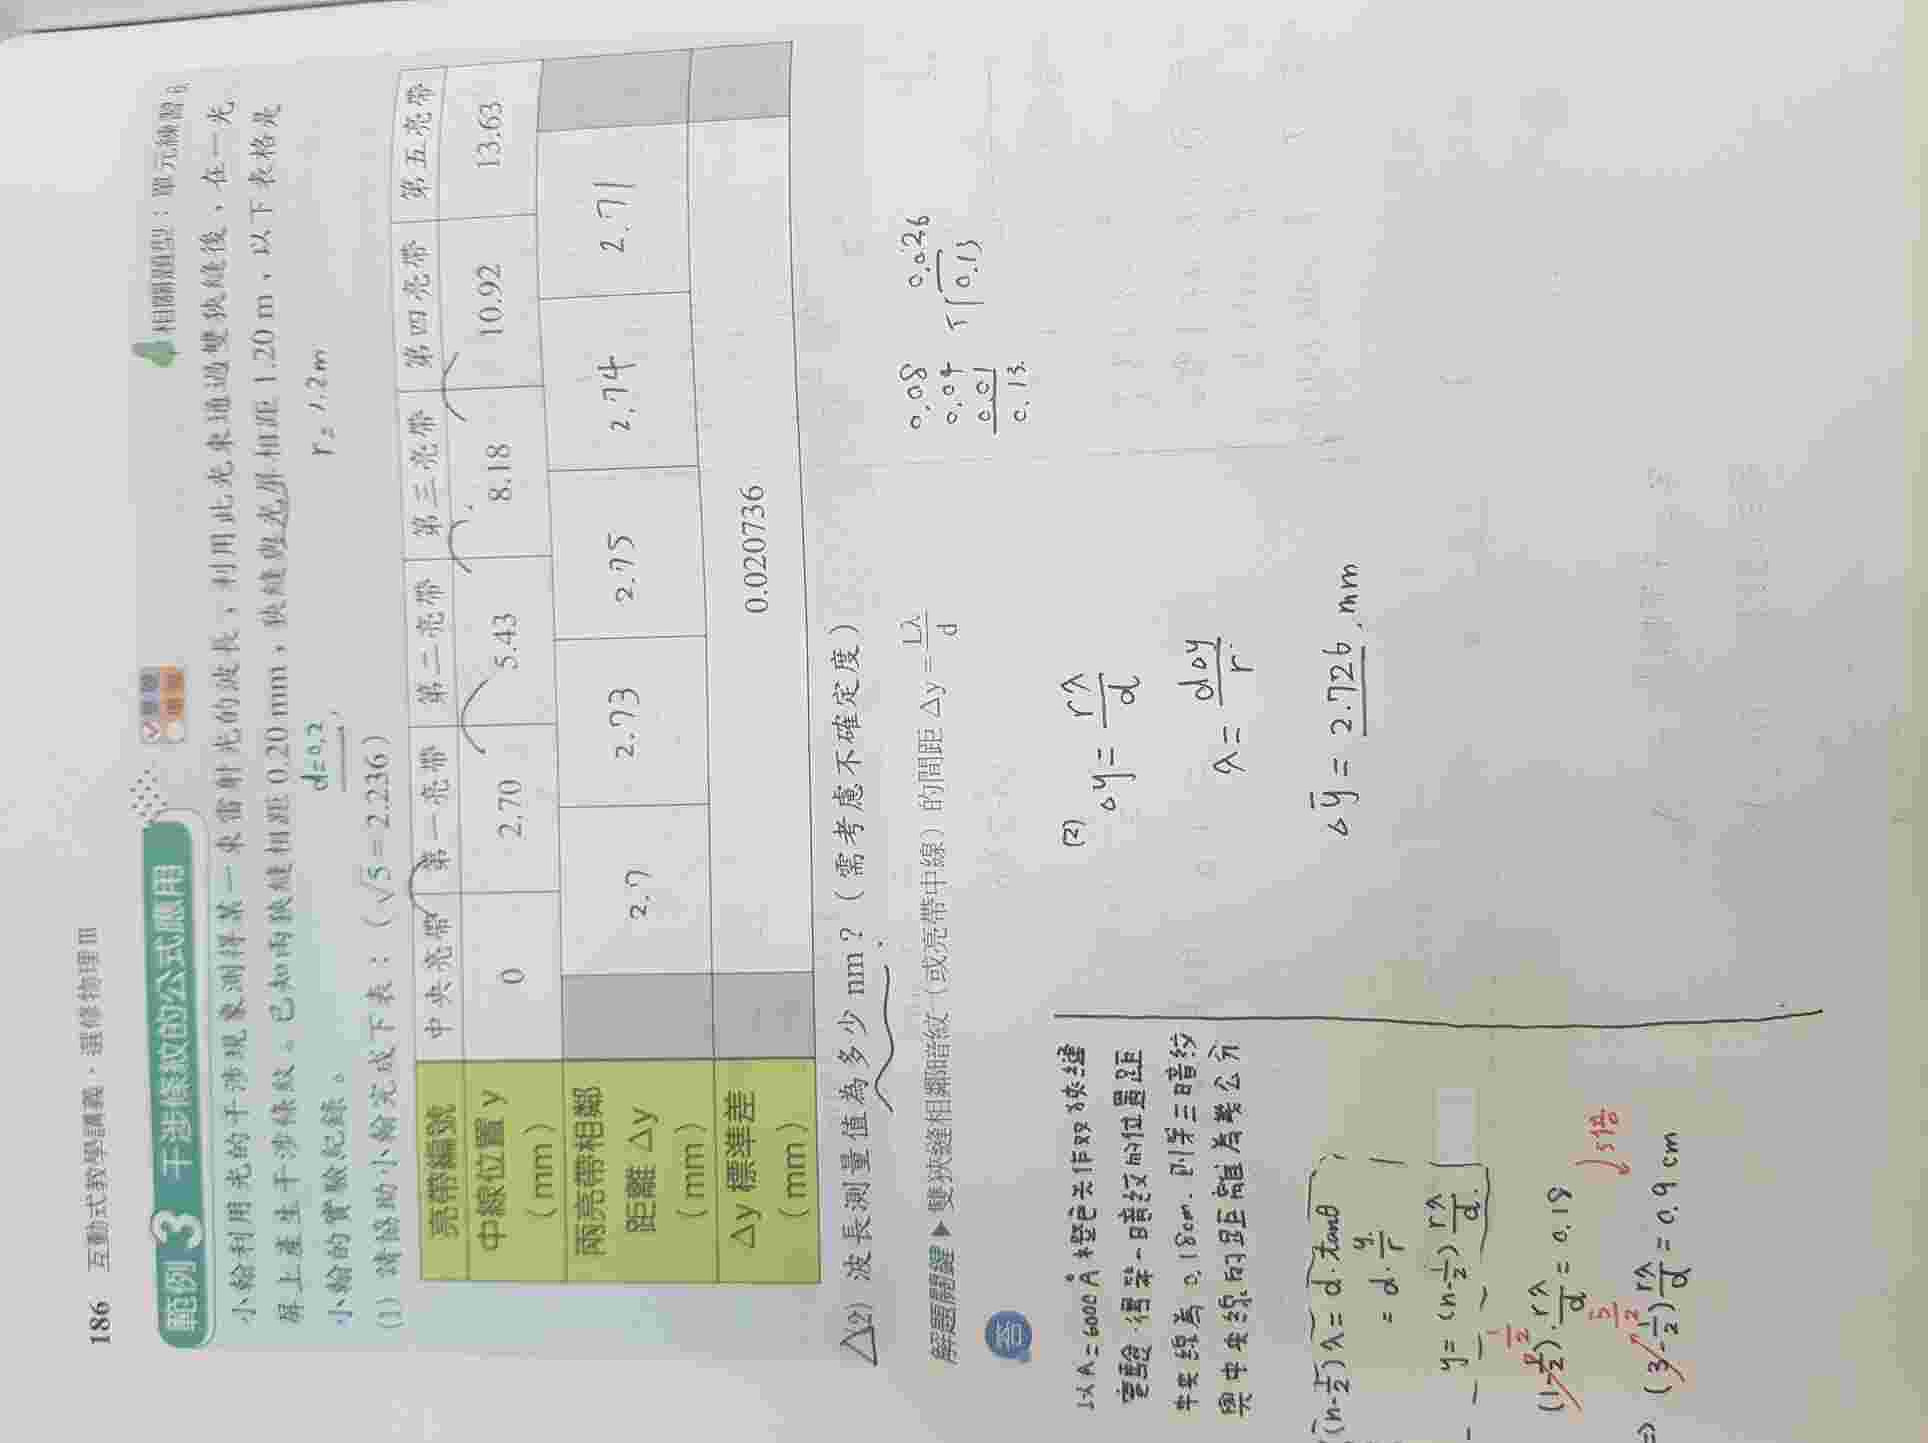 186 互動式教學講義・選修物理 III
範例 3 干涉條紋的公式應用
相關題型：單元練習 6
小翰利用光的干涉現象測得某一束雷射光的波長，利用此光束通過雙狹縫後，在一光
屏上產生干涉條紋。已知兩狹縫相距 0.20 mm，狹縫與光屏相距 1.20 m，以下表格是
d=0.2
r = 1.2m
小翰的實驗紀錄。
(1) 請協助小翰完成下表：（√5 = 2.236）
亮帶編號 中央亮帶 第一亮帶 第二亮帶 第三亮帶 第四亮帶 第五亮帶
中線位置 y
（mm） 0 2.70 5.43 8.18 10.92 13.63
兩亮帶相鄰
距離 Δy
（mm） 2.7 2.73 2.75 2.74 2.71
Δy 標準差
（mm） 0.020736
(2) 波長測量值為多少 nm？（需考慮不確定度）
解題關鍵▶雙狹縫相鄰暗紋（或亮帶中線）的間距 Δy = Lλ/d
答
以 λ = 6000 Å 橙色光作双狹縫
實驗，得第一暗紋的位置距
中央線為 0.18cm. 則第三暗紋
與中央線的距離為幾公分
(n-1/2)λ = d · tanθ
= d · y/r
y = (n-1/2) rλ/d
(1-1/2) · rλ/d = 0.18
1/2
5倍
⇒ (3-1/2) rλ/d = 0.9 cm
5/2
(2)
Δy = rλ/d
λ = dΔy/r
Δy̅ = 2.726 mm
0.08
0.04
0.01
0.13
0.026
5 0.13